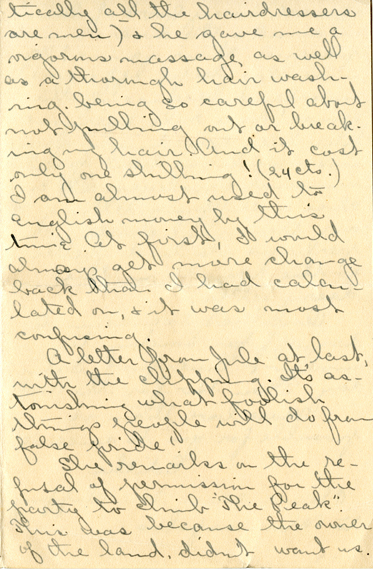 tically all the hairdressers
are men) & he gave me a
vigorous massage as well
as a thorough hair wash-
ing. being so careful about
not pulling out or break-
ing my hair. And it cost
only one shilling! (24 cts.)
I am almost used to
English money by this
time. At first, I would
always get more change
back than I had calcu-
lated on, & it was most
confusing.
A letter from Jule at last,
with the clipping. It's as-
tonishing what foolish
things people will do from
false pride.
The remarks on the re-
fusal of permission for the
party to climb "The Peak".
This was because the owner
of the land, didn't want us.